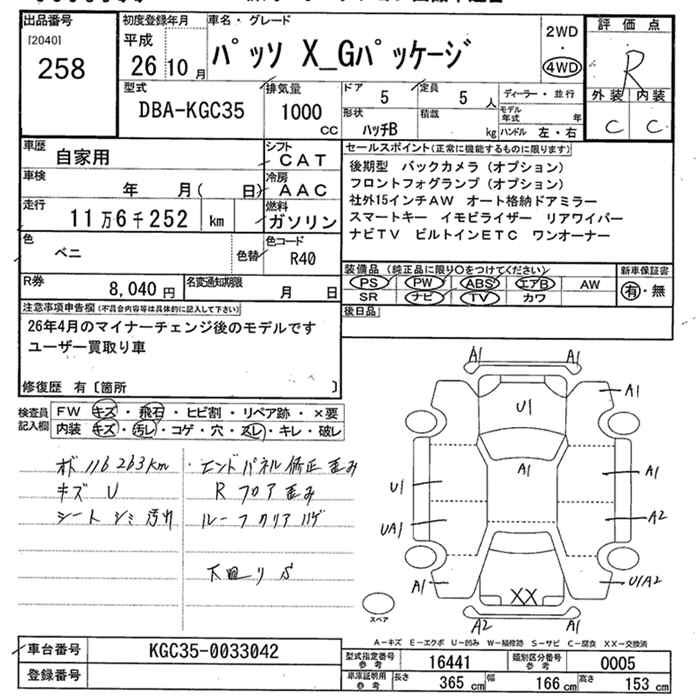 出品番号
[2040]
258
初度登録年月
平成
26年10月
車名・グレード
パッソ X_Gパッケージ
2WD
・
4WD
評価点
R
外装 内装
C C
型式
DBA-KGC35
排気量
1000 cc
ドア 5
定員 5 人
ディーラー・並行
形状 ハッチB
積載 kg
モデル年式 年
ハンドル 左・右
車歴 自家用
シフト CAT
車検 年 月( 日)
冷房 AAC
走行 11万6千252 km
燃料 ガソリン
色 ベニ 色替
色コード R40
R券 8,040円
名変通知期限 月 日
セールスポイント(正常に機能するものに限ります)
後期型 バックカメラ(オプション)
フロントフォグランプ(オプション)
社外15インチAW オート格納ドアミラー
スマートキー イモビライザー リアワイパー
ナビTV ビルトインETC ワンオーナー
装備品(純正品に限り○をつけてください)
新車保証書
PS PW ABS エアB AW
有・無
SR ナビ TV カワ
後日品
注意事項申告欄(不具合内容等は具体的に記入して下さい)
26年4月のマイナーチェンジ後のモデルです
ユーザー買取り車
修復歴 有〔箇所 〕
検査員記入欄
FW キズ・飛石・ヒビ割・リペア跡・×要
内装 キズ・汚レ・コゲ・穴・スレ・キレ・破レ
116263km
キズ U
シート シミ 汚れ
エンドパネル修正歪み
R フロア歪み
ルーフクリアハゲ
A1 A1
U1
A1
A1
A1
U1
UA1
A2
A1
U/A2
XX
A2 A1
スペア
A-キズ E-エクボ U-凹み W-補修跡 S-サビ C-腐食 XX-交換済
車台番号 KGC35-0033042
登録番号
型式指定番号 参考 16441
類別区分番号 参考 0005
車庫証明用 参考 長さ 365 cm 幅 166 cm 高さ 153 cm